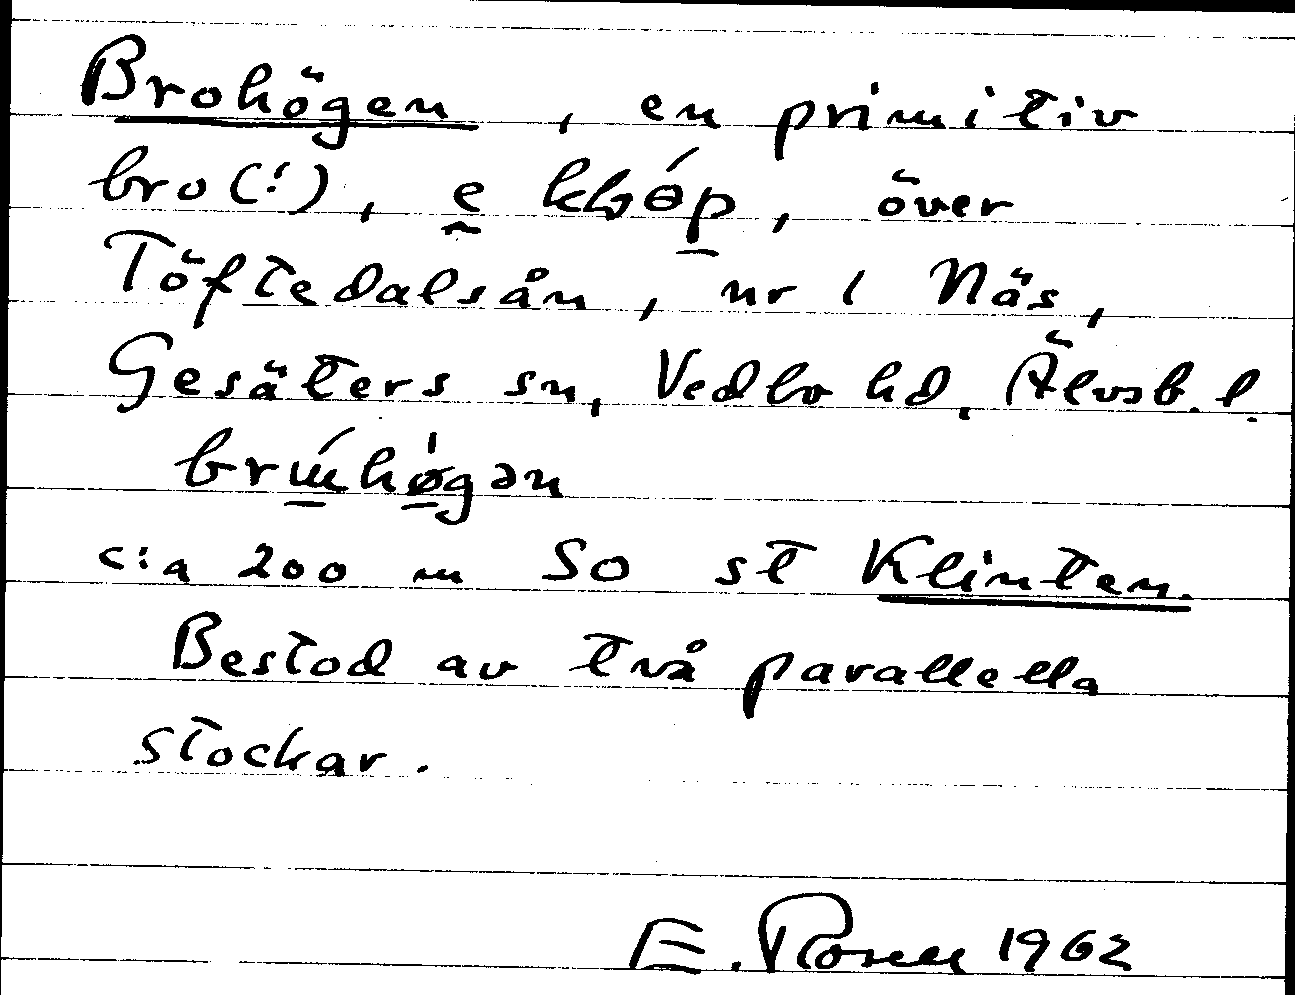 Brohögen, en primitiv
bro(!), ḛ klɞóp̱, över
Töftedalsån, nr 1 Näs,
Gesäters sn, Vedbo hd, Älvsb. l.
brɯ̱́hø̱̍gən
c:a 200 m SO st Klinten.
Bestod av två parallella
stockar.
E. Rosell 1962